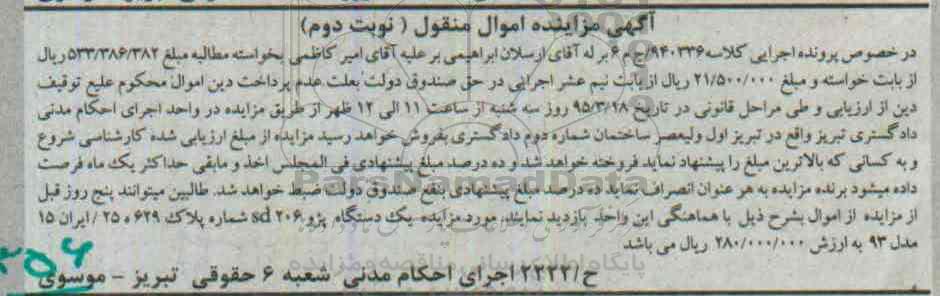 آگهی مزاینده اموال منقول ( نوبت دوم)
در خصوص پرونده اجرایی کلاسه ۹۴۰۳۳۶/ج م ۶ بر له آقای ارسلان ابراهیمی بر علیه آقای امیر کاظمی بخواسته مطالبه مبلغ ۵۳۳/۳۸۶/۳۸۲ ریال
از بابت خواسته و مبلغ ۲۱/۵۰۰/۰۰۰ ریال از بابت نیم عشر اجرایی در حق صندوق دولت بعلت عدم پرداخت دین اموال محکوم علیع توقیف
دین از ارزیابی و طی مراحل قانونی در تاریخ ۹۵/۳/۱۸ روز سه شنبه از ساعت ۱۱ الی ۱۲ ظهر از طریق مزایده در واحد اجرای احکام مدنی
دادگستری تبریز واقع در تبریز اول ولیعصر ساختمان شماره دوم دادگستری بفروش خواهد رسید مزایده از مبلغ ارزیابی شده کارشناسی شروع
و به کسانی که بالاترین مبلغ را پیشنهاد نماید فروخته خواهد شد و ده درصد مبلغ پیشنهادی فی المجلس اخذ و مابقی حداکثر یک ماه فرصت
داده میشود برنده مزایده به هر عنوان انصراف نماید ده درصد مبلغ پیشنهادی بنفع صندوق دولت ضبط خواهد شد. طالبین میتوانند پنج روز قبل
از مزایده از اموال بشرح ذیل با هماهنگی این واحد بازدید نمایند. مورد مزایده یک دستگاه پژو ۲۰۶ sd شماره پلاک ۶۲۹ ه ۲۵ / ایران ۱۵
مدل ۹۳ به ارزش ۲۸۰/۰۰۰/۰۰۰ ریال می باشد
ح/۲۲۲۲ اجرای احکام مدنی شعبه ۶ حقوقی تبریز - موسوی
ParsNamadData
پایگاه اطلاع رسانی مناقصه و مزایده